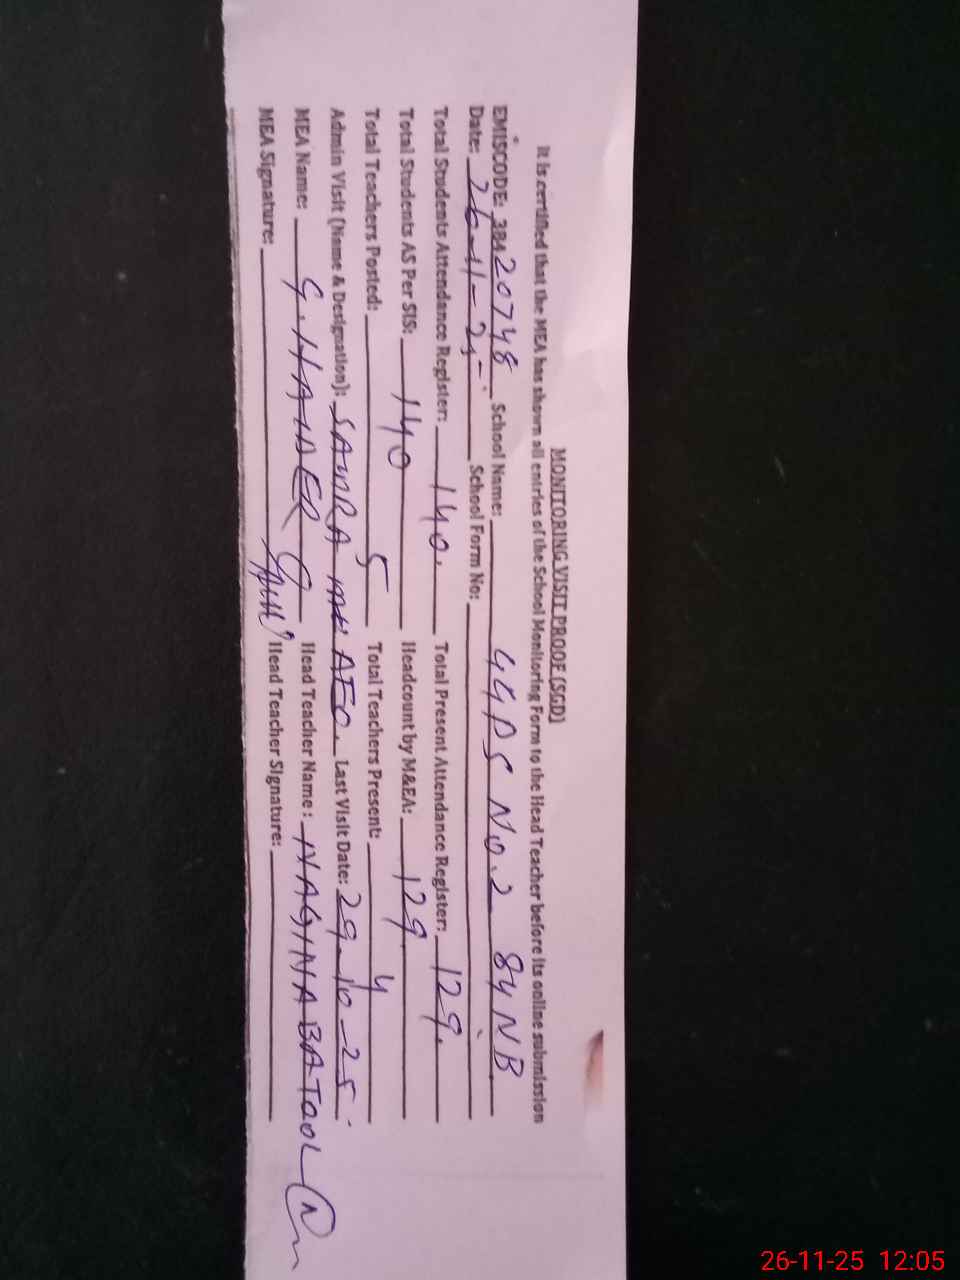 MONITORING VISIT PROOF (SGD)
It is certified that the MEA has shown all entries of the School Monitoring Form to the Head Teacher before its online submission
EMISCODE: 38420748 School Name: GGPS No. 2 84 NB
Date: 26-11-25 School Form No:
Total Students Attendance Register: 140. Total Present Attendance Register: 129.
Total Students AS Per SIS: 140 Headcount by M&EA: 129
Total Teachers Posted: 5 Total Teachers Present: 4
Admin Visit (Name & Designation): SAMRA AEO. Last Visit Date: 29-10-25
MEA Name: G. HAIDER Head Teacher Name: NAGINA BATOOL
MEA Signature: Head Teacher Signature:
26-11-25 12:05